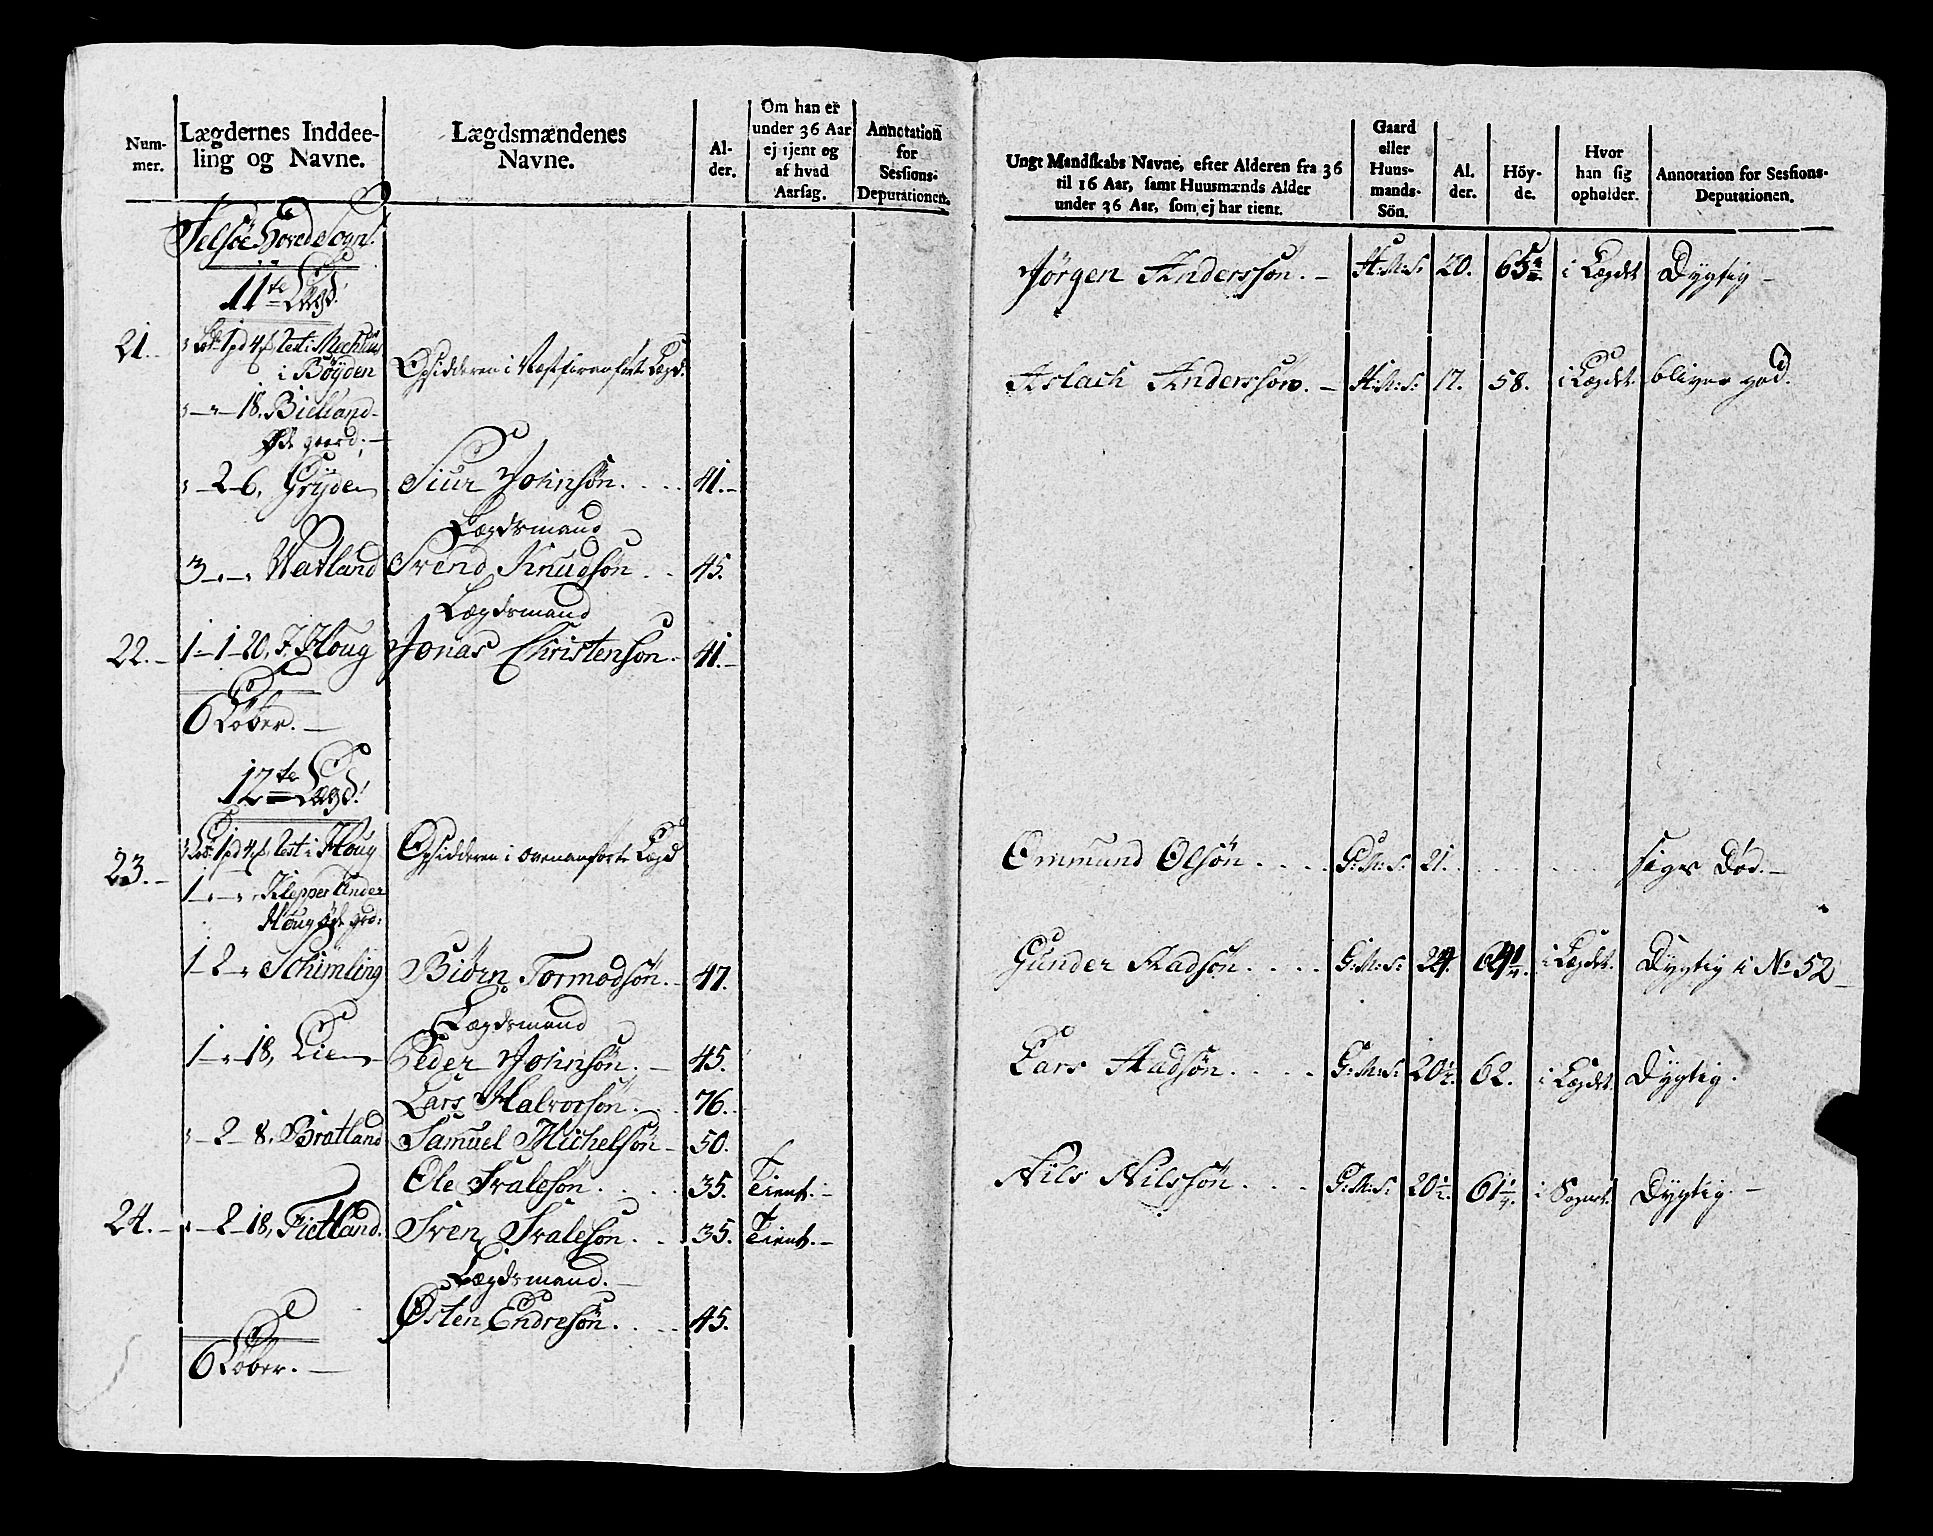 Num-
mer.
Lægdernes Inddee-
ling og Navne.
Lægdsmændenes
Navne.
Al-
der.
Om han er
under 36 Aar
ej tjent og
af hvad
Aarsag.
Annotation
for
Sessions-
Deputationen.
Jelsöe Hoved Sogn.
11te Lægd.
21. 1pd 4 Rest i
i Böyden Opsidderen i Næst foranförte Lægd.
18. Bielland
Øde gaard.
2 - 6. Grÿden Siur Johnsön. 41.
Lægdsmand
3 Watland Svend Knudsön 45.
Lægdsmand
22. 1 - 1 - 20. Houg Jonas Christensön 41.
6 Löber.
12te Lægd.
23. Löb 1pd 4 Rest i Houg Opsidderen i ovenanförte Lægd
1 Klepper under
Houg Øde grd:
1 - 2 Schimling Biörn Tormodsön. 47.
Lægdsmand
1 - 18. Lien Peder Johnsön. 45.
Lars Halvorsön. 76.
2 - 8. Bratland Samuel Michelsön 50.
Ole Svalesön. 35. Tient.
24. 2 - 18. Fietland. Sven Svalesön. 35. Tient.
Lægdsmand.
Østen Endresön. 45.
6 Löber.
Ungt Mandskabs Navne, efter Alderen fra 36
til 16 Aar, samt Huusmænds Alder
under 36 Aar, som ej har tient.
Gaard
eller
Huus-
mands-
Sön.
Al.
der.
Höy-
de.
Hvor
han sig
opholder.
Annotation for Sessions-
Deputationen.
Jörgen Anderssön. H:M:S: 20. i Lægdet Dygtig
Aslach Anderssön. H:M:S: 17. 58. i Lægdet bliver god.
Ommund Olsön G:M:S: 21. siges Död.
Gunder Aadsön. G:M:S: 24. 64 1/4. i Lægdet. Dygtig i No 52
Lars Aadsön. G:M:S: 20 1/2. 62. i Lægdet Dygtig.
Nils Nilssön. G:M:S: 20 1/2. 61 1/4. i Sognet. Dygtig.